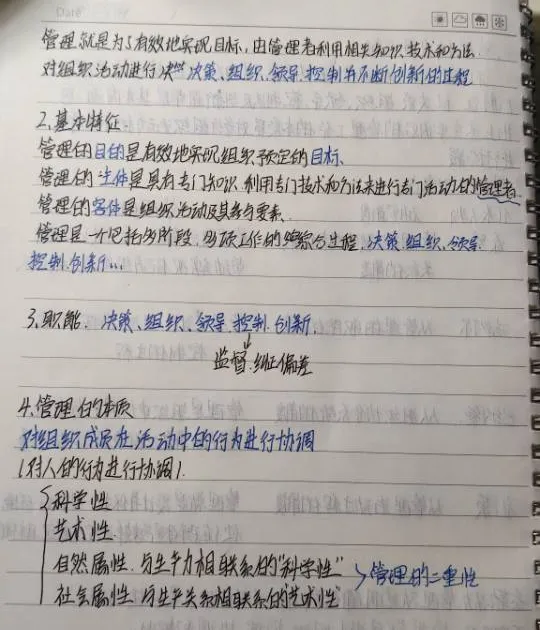 Date
管理就是为了有效地实现目标，由管理者利用相关知识、技术和方法
对组织活动进行决策、组织、领导、控制并不断创新的过程
2、基本特征
管理的目的是有效地实现组织预定的目标、
管理的主体是具有专门知识、利用专门技术和方法来进行专门活动的管理者
管理的客体是组织活动及其参与要素、
管理是一个包括多阶段、多项工作的综合过程、决策、组织、领导
控制、创新…
3、职能、决策、组织、领导、控制、创新、
监督、纠正偏差
4、管理的本质
对组织成员在活动中的行为进行协调
（对人的行为进行协调）、
科学性
艺术性
自然属性、与生产力相联系的“科学性”
管理的二重性
社会属性、与生产关系相联系的艺术性